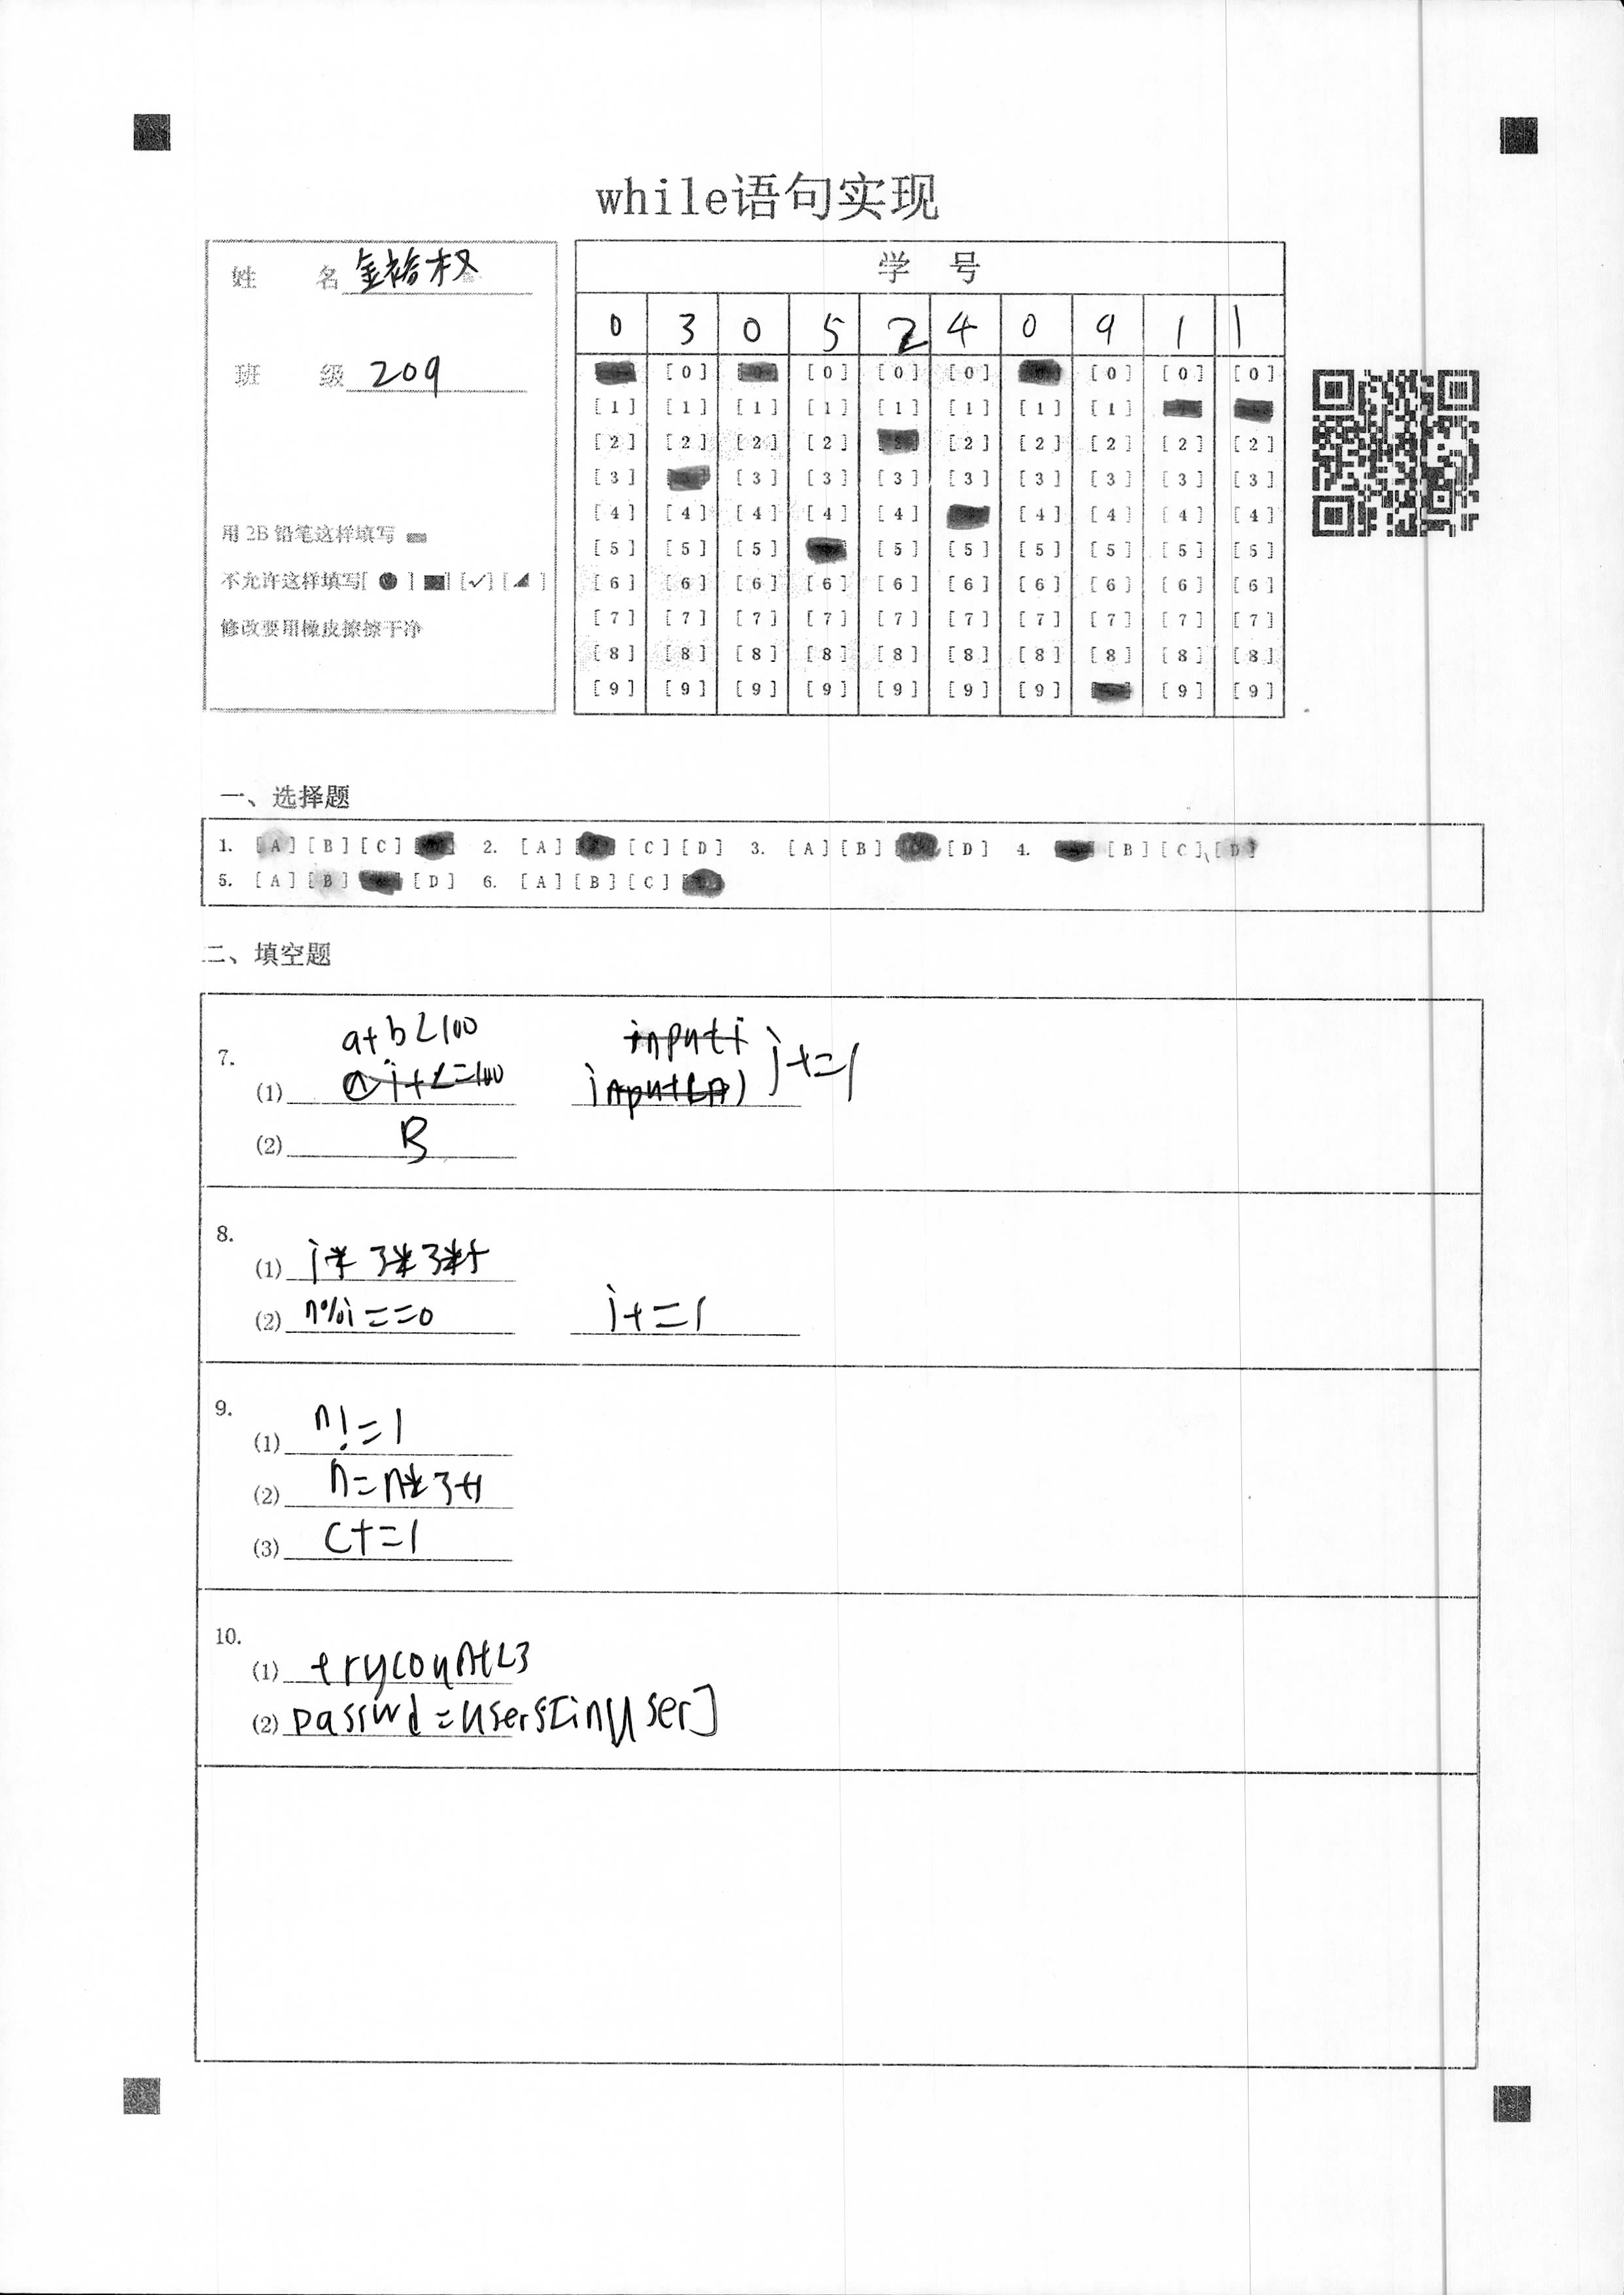 while语句实现
姓 名 金裕权
班 级 209
用 2B 铅笔这样填写
不允许这样填写[ ● ] [■] [✓] [◢ ]
修改要用橡皮擦擦干净
学 号
0 3 0 5 2 4 0 9 1 1
[0] [0] [0] [0] [0] [0] [0]
[1] [1] [1] [1] [1] [1] [1] [1]
[2] [2] [2] [2] [2] [2] [2] [2] [2]
[3] [3] [3] [3] [3] [3] [3] [3] [3]
[4] [4] [4] [4] [4] [4] [4] [4] [4]
[5] [5] [5] [5] [5] [5] [5] [5] [5]
[6] [6] [6] [6] [6] [6] [6] [6] [6] [6]
[7] [7] [7] [7] [7] [7] [7] [7] [7] [7]
[8] [8] [8] [8] [8] [8] [8] [8] [8] [8]
[9] [9] [9] [9] [9] [9] [9] [9] [9]
一、选择题
1. [A] [B] [C] 2. [A] [C] [D] 3. [A] [B] [D] 4. [B] [C] [D]
5. [A] [B] [D] 6. [A] [B] [C]
二、填空题
7.
a+b<100
(1) i+=1
(2) B
8.
(1) i* 3*3*5
(2) n%i==0 i+=1
9.
(1) n!=1
(2) n=n*3+1
(3) c+=1
10.
(1) trycount<3
(2) passwd=users[inuser]